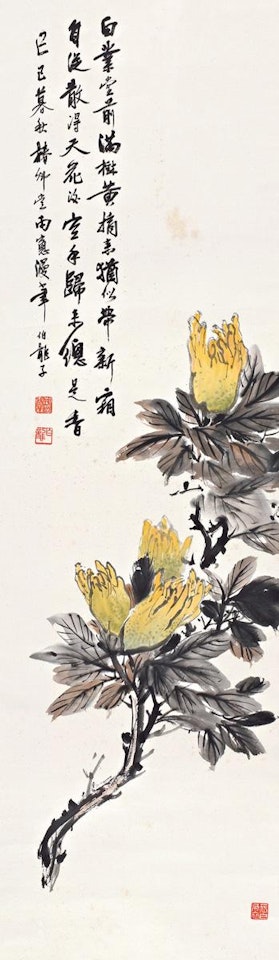 白業堂前滿樹黃摘來猶似帶新霜
自從散得天花後空手歸來總是香
己巳暮秋堂雨窗漫筆 伯龍子